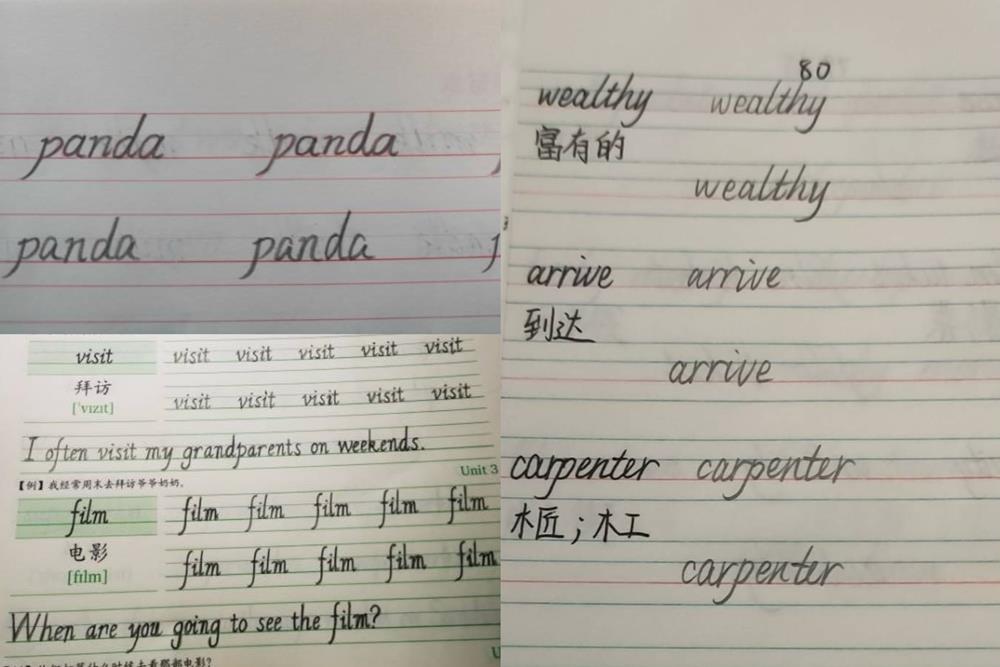 panda panda
panda panda
visit visit visit visit visit visit
拜访
['vɪzɪt] visit visit visit visit visit
I often visit my grandparents on weekends.
Unit 3
【例】我经常周末去拜访爷爷奶奶。
film film film film film film
电影
[fɪlm] film film film film film
When are you going to see the film?
80
wealthy wealthy
富有的
wealthy
arrive arrive
到达
arrive
carpenter carpenter
木匠；木工
carpenter